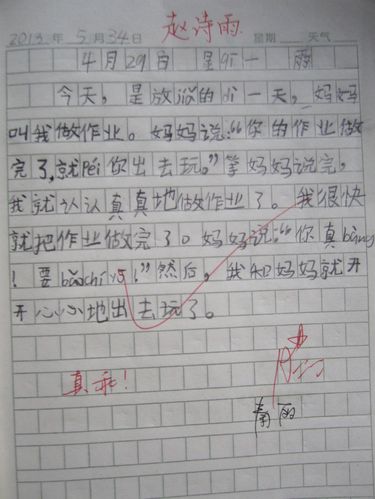 赵诗雨
2013年5月34日 星期 天气
4月29日 星qī一 雨
今天，是放jià的dì一天，妈妈
叫我做作业。妈妈说：“你的作业做
完了，就péi你出去玩。”等妈妈说完，
我就认认真真地做作业了。我很快
就把作业做完了。妈妈说：“你真bàng
！要bǎochí ！”然后，我和妈妈就开
开心心地出去玩了。
真乖！